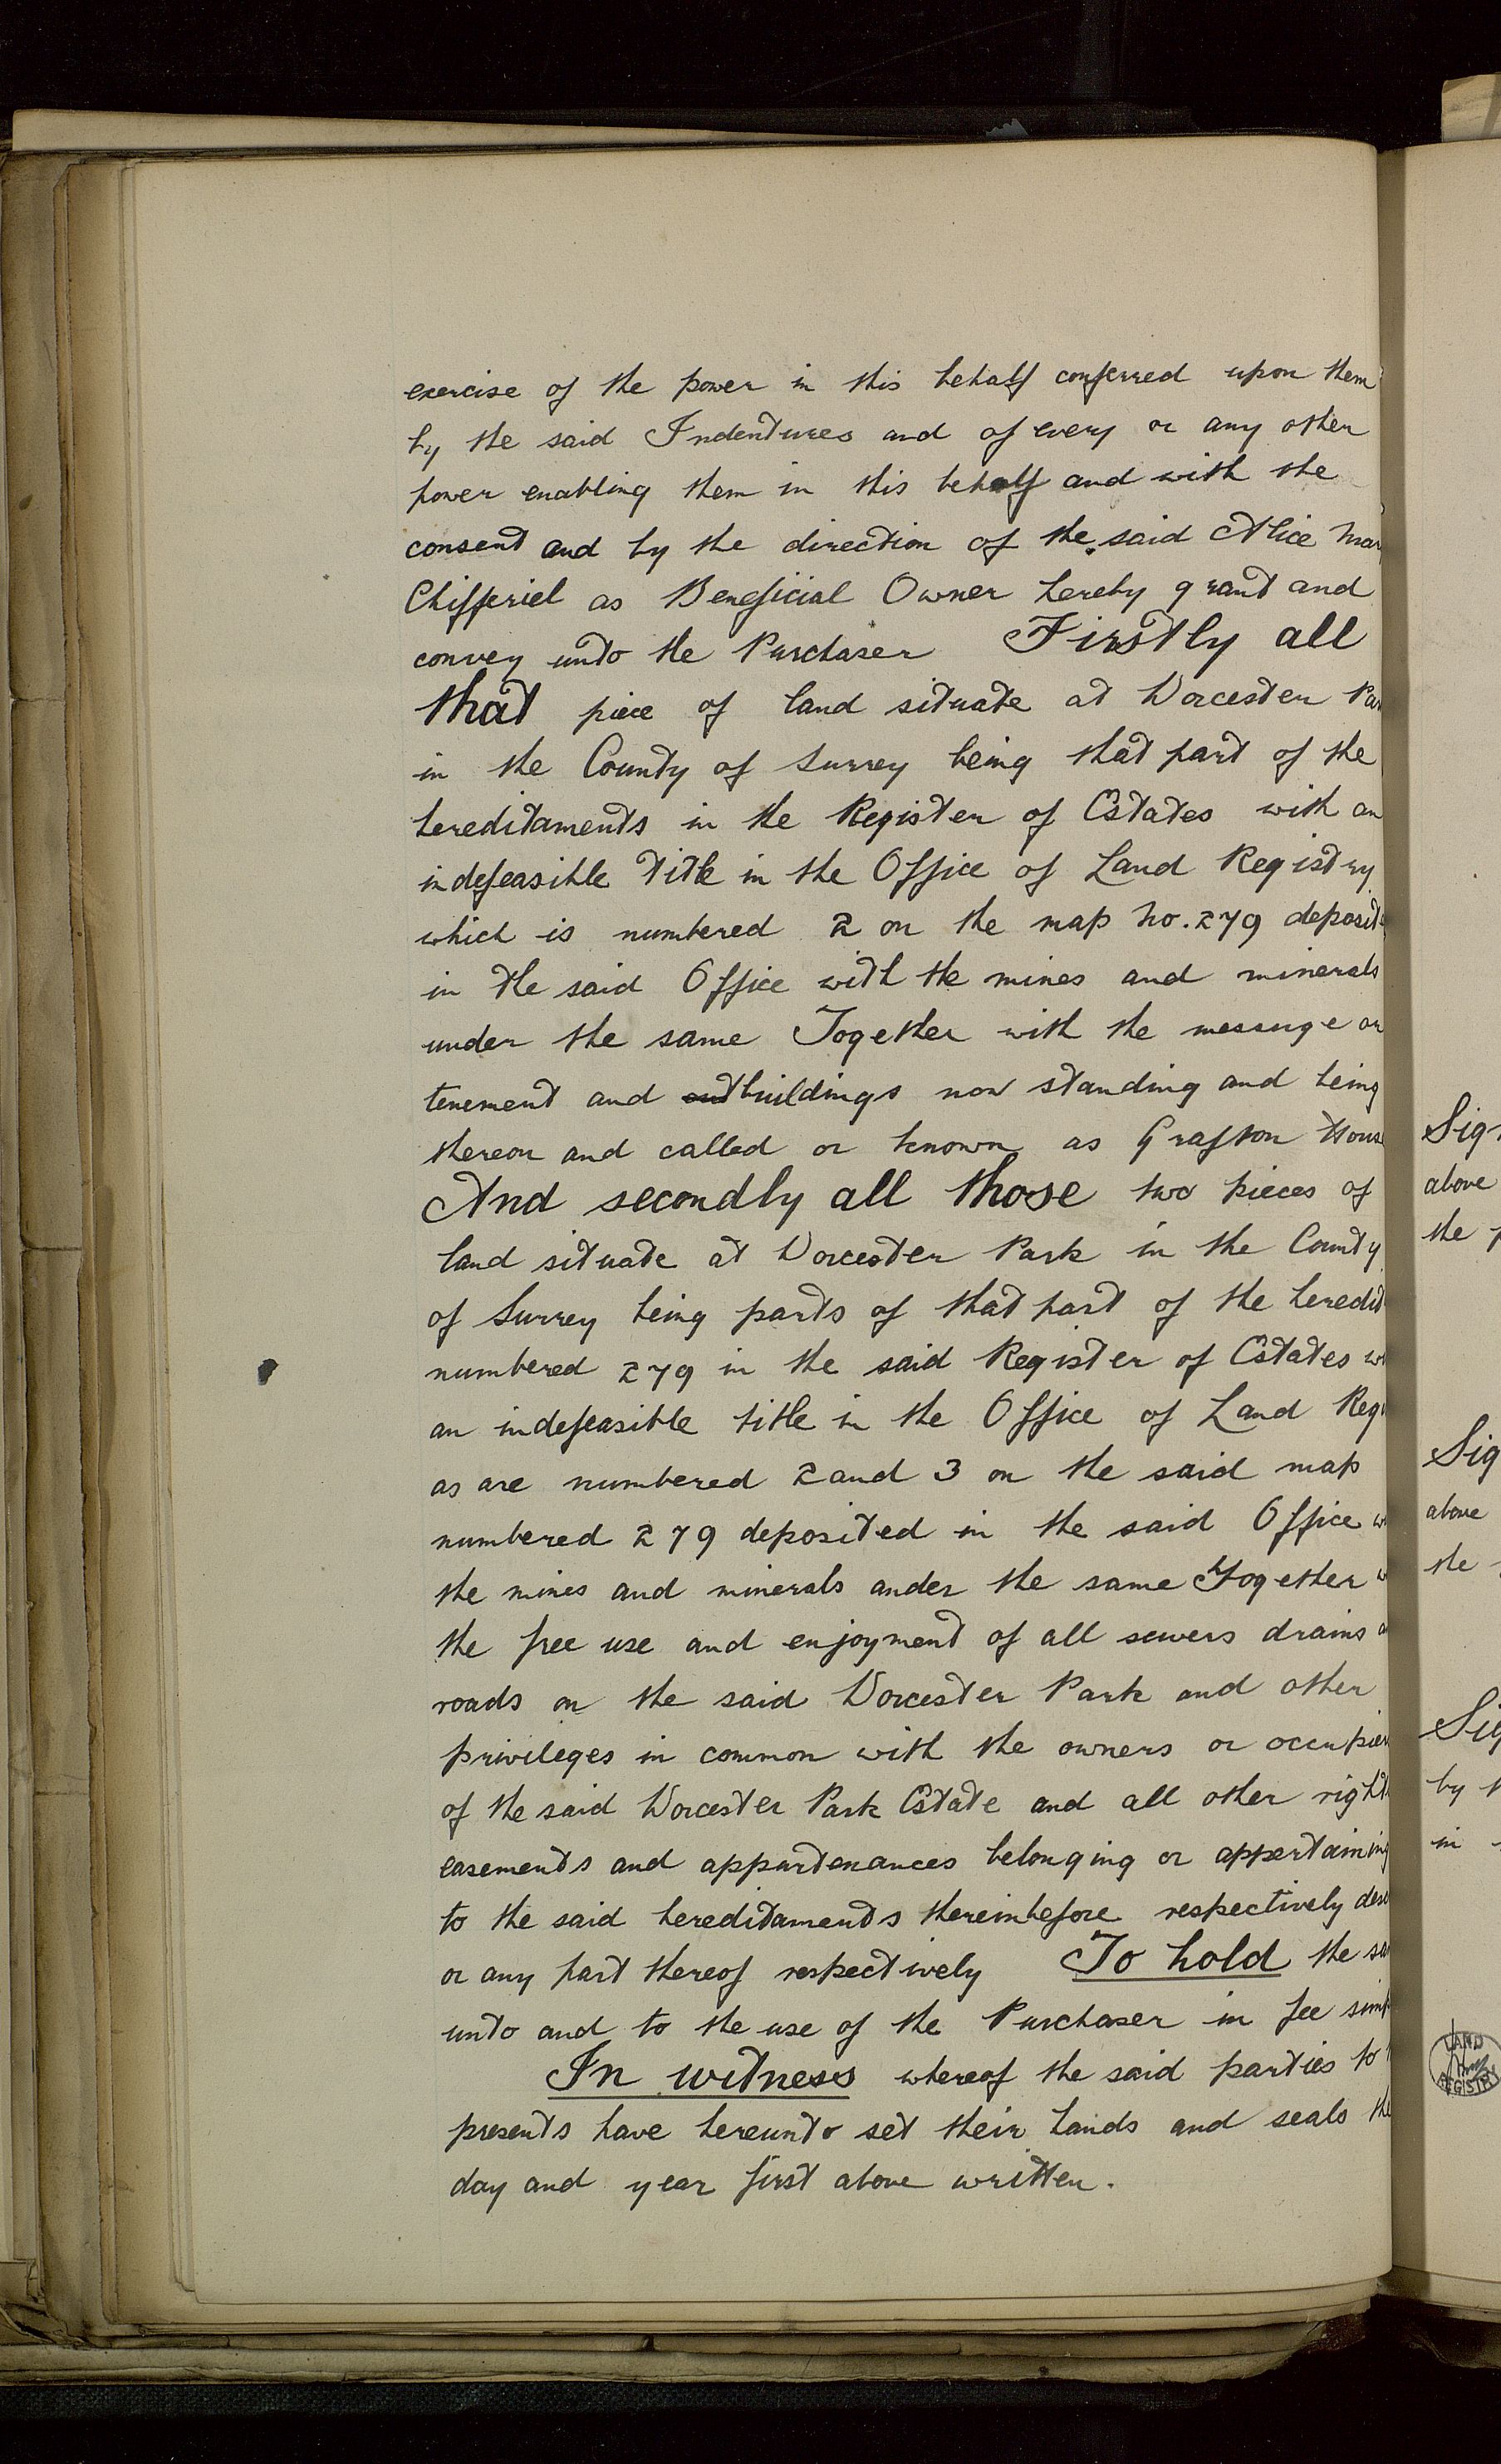 exercise of the power in this behalf conferred upon them
by the said Indentures and of every or any other
power enabling them in this behalf and with the
consent and by the direction of the said Alice Mar
Chifferiel as Beneficial Owner hereby grant and
convey unto the Purchaser Firstly all
that piece of land situate at Worcester Par
in the County of Surrey being that part of the
hereditaments in the Register of Estates with an
indefeasible Title in the Office of Land Registry
which is numbered 2 on the map No. 279 deposite
in the said Office with the mines and minerals
under the same Together with the messuage or
tenement and outbuildings now standing and being
thereon and called or known as Grafton House
And secondly all those two pieces of
land situate at Worcester Park in the County
of Surrey being parts of that part of the heredit
numbered 279 in the said Register of Estates wi
an indefeasible title in the Office of Land Regi
as are numbered 2 and 3 on the said map
numbered 279 deposited in the said Office w
the mines and minerals under the same Together w
the free use and enjoyment of all sewers drains a
roads on the said Worcester Park and other
privileges in common with the owners or occupier
of the said Worcester Park Estate and all other right
easements and appurtenances belonging or appertaining
to the said hereditaments thereinbefore respectively des
or any part thereof respectively To hold the sa
unto and to the use of the Purchaser in fee simp
In witness whereof the said parties to
presents have hereunto set their hands and seals the
day and year first above written.
Sig
above
the
Sig
above
the
Sig
by
in
LAND
REGISTRY